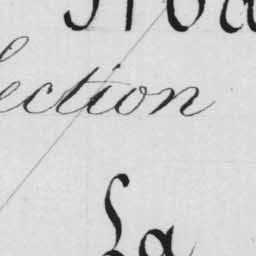 ection
La